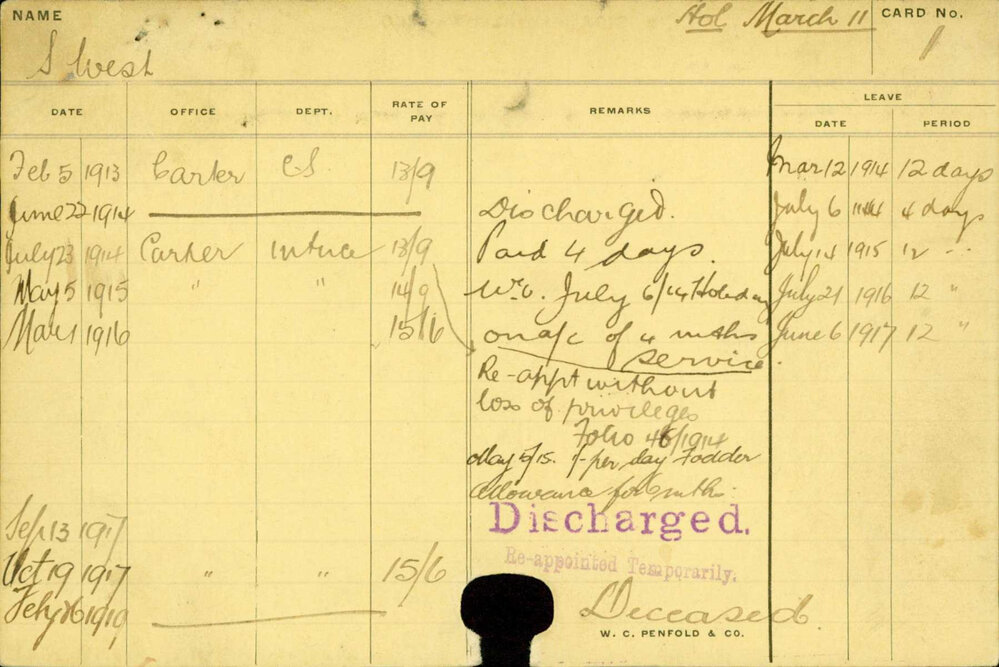 NAME
Hol March 11
CARD No.
1
S West
DATE OFFICE DEPT. RATE OF PAY REMARKS LEAVE
DATE PERIOD
Feb 5 1913 Carter 13/9 Mar 12 1914 12 days
June 22 1914 Discharged. July 6 1914 4 days
July 23 1914 Carter 13/9 Paid 4 days. July 14 1915 12 "
May 5 1915 " " 14/9 July 6/14 Holiday July 21 1916 12 "
Mar 1 1916 " 15/6 on a/c of 4 mths June 6 1917 12 "
service.
Re-appt without
loss of privileges
Folio 46/1914
May 5/15. 1/- per day Fodder
allowance for 6 mths.
Sep 13 1917 Discharged.
Oct 19 1917 " " 15/6 Re-appointed Temporarily.
Feby 16 1919 Deceased.
W. C. PENFOLD & CO.